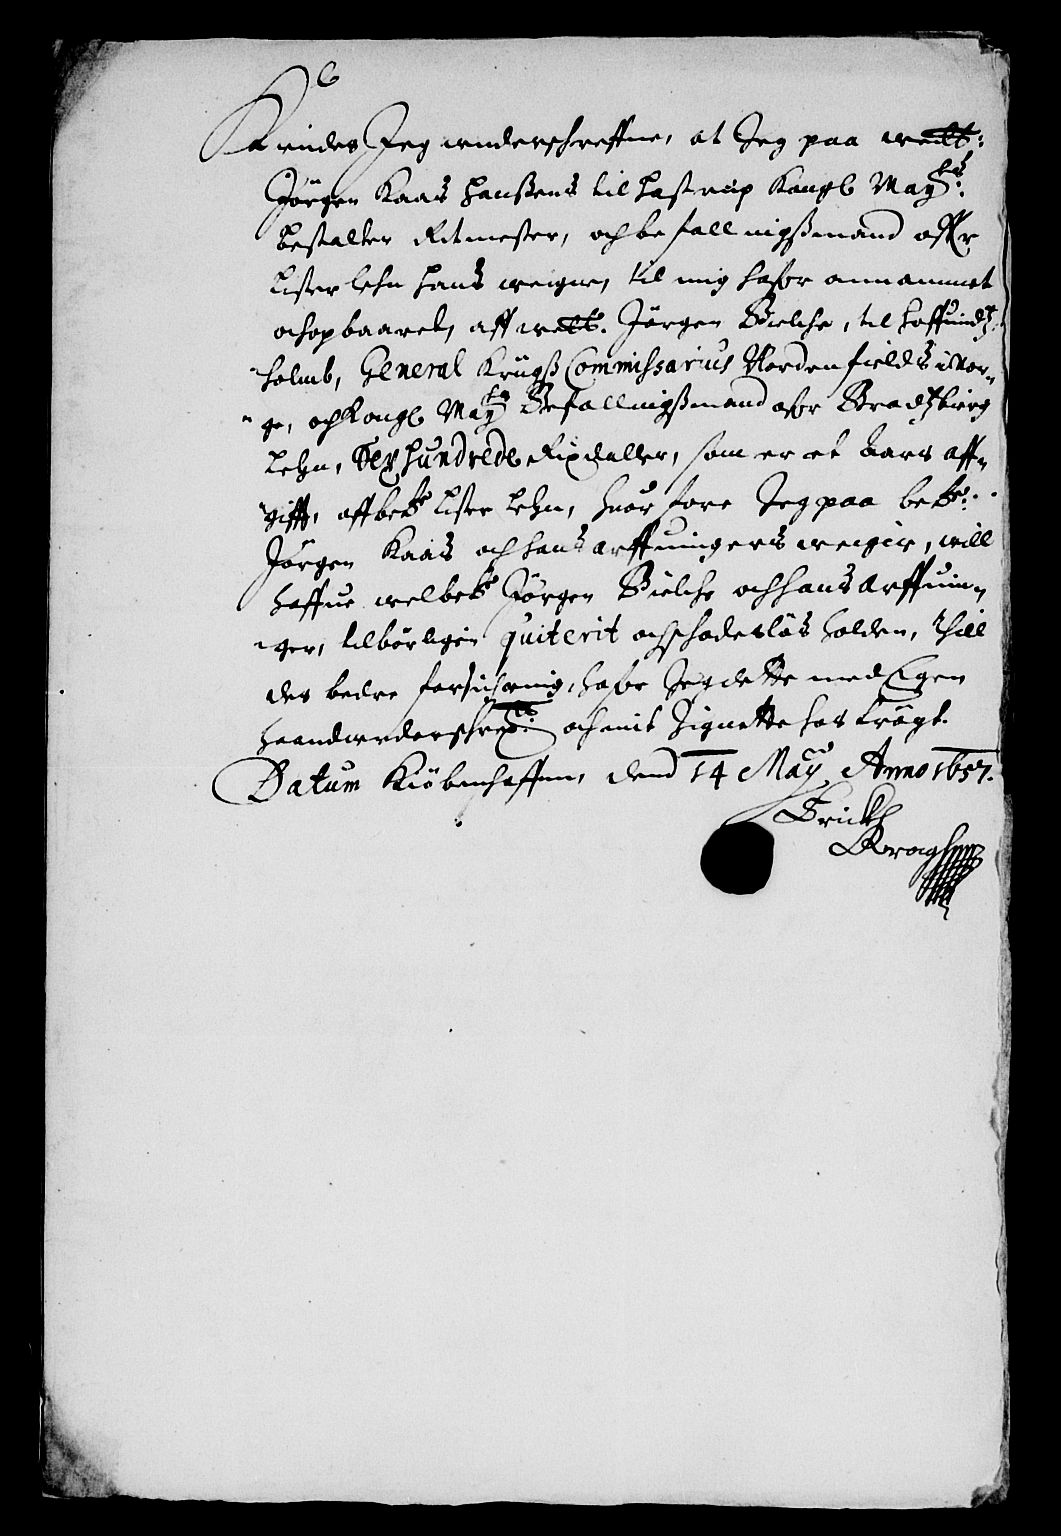 Kiendes Jeg underschreffne, at Jeg paa welb:
Jörgen Kaas Hanßens til Hastrup Kongl May:ts
bestalter Ritmester, och befallnigßmand offr
Lister lehn hans weigne, til mig hafr annammet
och opbaaret, aff welb. Jörgen Bielche, til Hoffuindtz
holmb, General Krügß Commissarius Nordenfields i Nor¬
ge, och Kongl May:ts Befallnigßmand ofr Bradtzbierg
Lehn, Sex hundrede Rixdaller, som er et Aars aff¬
gifft, aff bete Lister Lehn, huor fore Jeg paa bete:
Jörgen Kaas och hans arffuingers weigne, will
haffue welbete Jörgen Bielche och hans Arffuin¬
ger, tilbörligen quiterit och schadeslös holden, Thill
des bedre forsichring, hafr Jeg dette med Egen
haand underschreffuit och mit Signette hos trögt.
Datum Kiöbenhaffn, dend 14 May Anno 1657.
Erick
Kragh